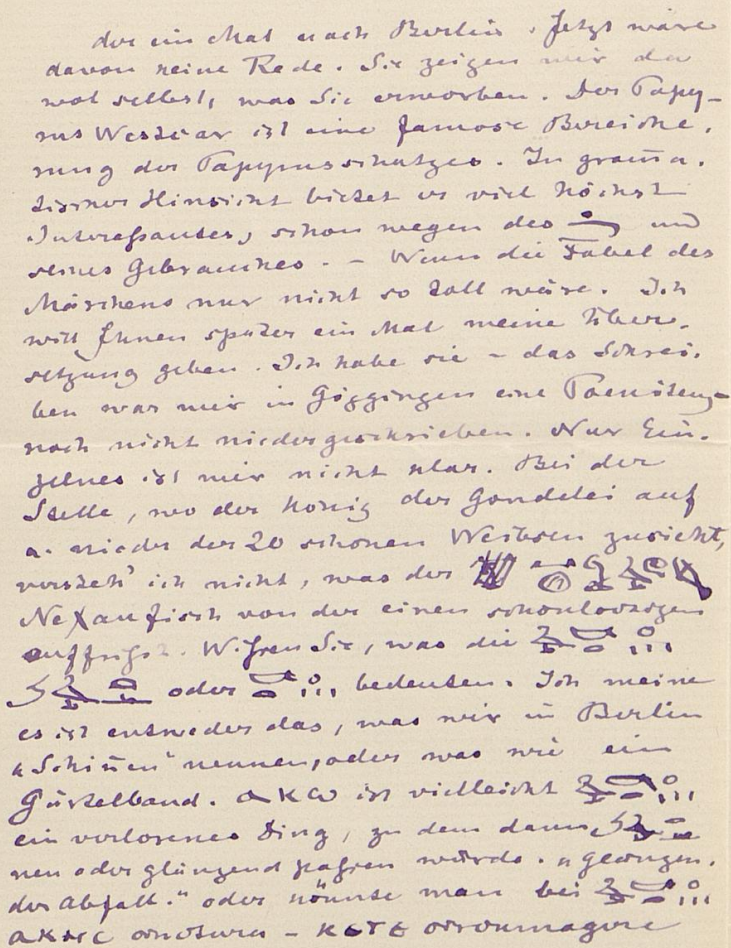 der ein Mal nach Berlin. Jetzt wäre
davon keine Rede. Sie zeigen mir da
wol selbst, was Sie erworben. Der Papy-
rus Westcar ist eine famose Bereiche.
rung des Papyrusschatzes. In gram̄a.
tischer Hinsicht bietet er viel höchst
Interessantes, schon wegen des und
seines Gebrauches. – Wenn die Fabel des
Märchens nur nicht so toll wäre. Ich
will Ihnen später ein Mal meine Über.
setzung geben. Ich habe sie – das Schrei.
ben war mir in Göggingen eine
noch nicht niedergeschrieben. Nur Ein.
zelnes ist mir nicht klar. Bei der
Stelle, wo der König der Gondelei auf
u. nieder der 20 schönen Weibsen zusieht,
versteh' ich nicht, was der
von der einen
. Wissen Sie, was die
oder bedeuten. Ich meine
es ist entweder das, was wir in Berlin
„Schin̄en" nennen, oder was wie ein
Gürtelband. ist vielleicht
ein verlorenes Ding, zu dem dann
neu oder glänzend passen würde.
der Abfall." oder könnte man bei